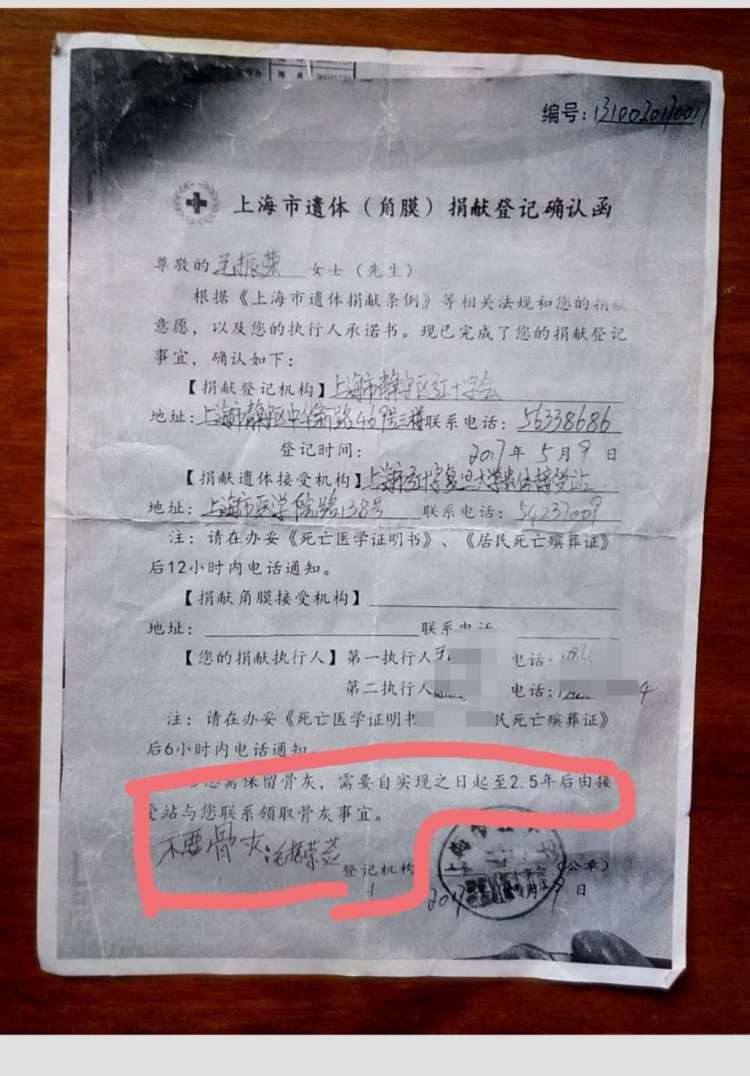 编号:1310020170017
上海市遗体（角膜）捐献登记确认函
尊敬的毛振荣 女士（先生）
根据《上海市遗体捐献条例》等相关法规和您的捐献
意愿，以及您的执行人承诺书。现已完成了您的捐献登记
事宜，确认如下：
【捐献登记机构】上海市静安区红十字会
地址:上海市静安区中华新路469号三楼联系电话:56338686
登记时间: 2017年5月9日
【捐献遗体接受机构】上海市红十字复旦大学遗体接受站
地址:上海市医学院路138号 联系电话:54237009
注: 请在办妥《死亡医学证明书》、《居民死亡殡葬证》
后12小时内电话通知。
【捐献角膜接受机构】
地址: 联系电话
【您的捐献执行人】第一执行人 电话:
第二执行人 电话:
注: 请在办妥《死亡医学证明书 民死亡殡葬证》
后6小时内电话通知。
您需保留骨灰，需要自实现之日起至2.5年后由接
受站与您联系领取骨灰事宜。
不要骨灰:毛振荣
登记机构 (公章)
2017 9日